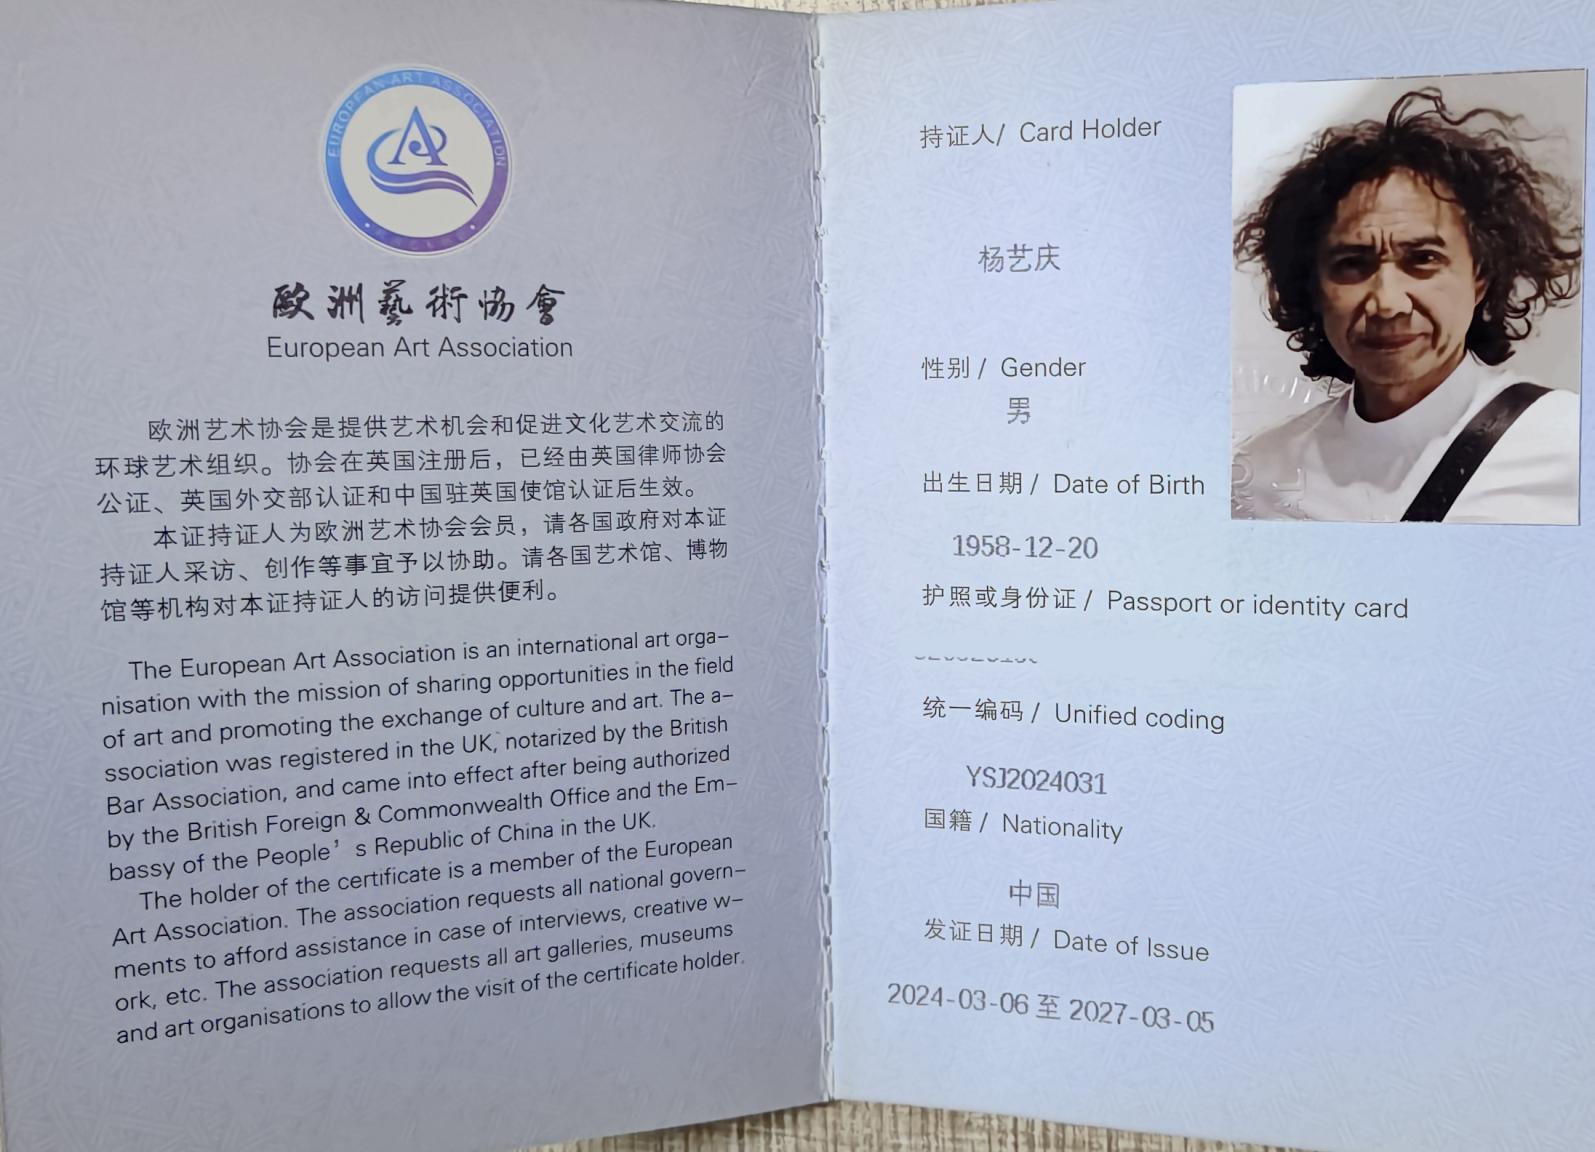 EUROPEAN ART ASSOCIATION
A
歐洲藝術協會
European Art Association
欧洲艺术协会是提供艺术机会和促进文化艺术交流的
环球艺术组织。协会在英国注册后，已经由英国律师协会
公证、英国外交部认证和中国驻英国使馆认证后生效。
本证持证人为欧洲艺术协会会员，请各国政府对本证
持证人采访、创作等事宜予以协助。请各国艺术馆、博物
馆等机构对本证持证人的访问提供便利。
The European Art Association is an international art orga–
nisation with the mission of sharing opportunities in the field
of art and promoting the exchange of culture and art. The a–
ssociation was registered in the UK, notarized by the British
Bar Association, and came into effect after being authorized
by the British Foreign & Commonwealth Office and the Em–
bassy of the People’ s Republic of China in the UK.
The holder of the certificate is a member of the European
Art Association. The association requests all national govern–
ments to afford assistance in case of interviews, creative w–
ork, etc. The association requests all art galleries, museums
and art organisations to allow the visit of the certificate holder.
持证人/ Card Holder
杨艺庆
性别 / Gender
男
出生日期 / Date of Birth
1958-12-20
护照或身份证 / Passport or identity card
统一编码 / Unified coding
YSJ2024031
国籍 / Nationality
中国
发证日期 / Date of Issue
2024-03-06 至 2027-03-05